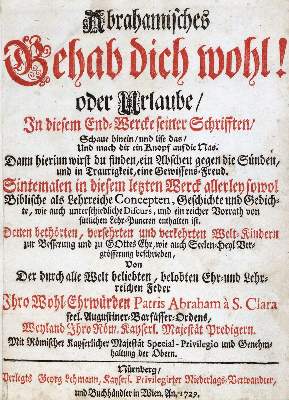 Abrahamisches
Gehab dich wohl!
oder Urlaube/
In diesem End-Wercke seiner Schrifften/
Schaue hinein/ und lise das/
Und mache dir ein Knopf auf die Nas.
Dann hierinn wirst du finden, ein Abscheu gegen die Sünden,
und in Traurigkeit, eine Gewissens-Freud.
Sintemalen in diesem letzten Werck allerley sowol
Biblische als Lehrreiche Concepten, Geschichte und Gedich-
te, wie auch unterschidliche Discurs, und ein reicher Vorrath von
sittlichen Lehr-Puncten enthalten ist.
Denen bethörten, versehrten und verkehrten Welt-Kindern
zur Besserung und zu GOttes Ehr, wie auch Seelen-Heyl Ver-
grösserung beschrieben,
Von
Der durch alle Welt beliebten, belobten Ehr- und Lehr-
reichen Feder
Ihro Wohl-Ehrwürden Patris Abraham à S. Clara
seel. Augustiner-Barfüsser-Ordens,
Weyland Ihro Röm. Kayserl. Majestät Predigern.
Mit Römischer Kayserlicher Majestät Special-Privilegio und Genehm-
haltung der Obern.
Nürnberg/
Verlegts Georg Lehmann, Kayserl. Privilegirter Niederlags-Verwandter,
und Buchhändler in Wien, An. 1729.